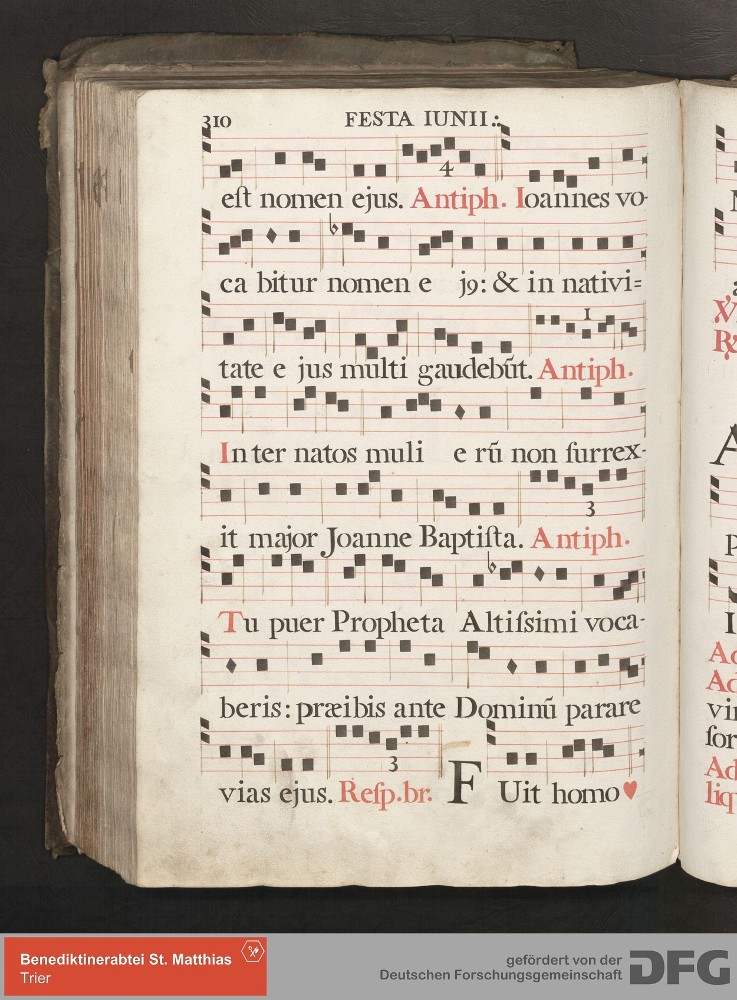 310 FESTA IUNII:.
4
eſt nomen ejus. Antiph. Ioannes vo-
ca bitur nomen e jꝰ: & in nativi=
1
tate e jus multi gaudebūt. Antiph.
Inter natos muli e rū non ſurrex-
3
it major Joanne Baptiſta. Antiph.
Tu puer Propheta Altiſsimi voca-
beris: præibis ante Dominū parare
3
vias ejus. Reſp.br. FUit homo
Benediktinerabtei St. Matthias
Trier
gefördert von der
Deutschen Forschungsgemeinschaft
DFG